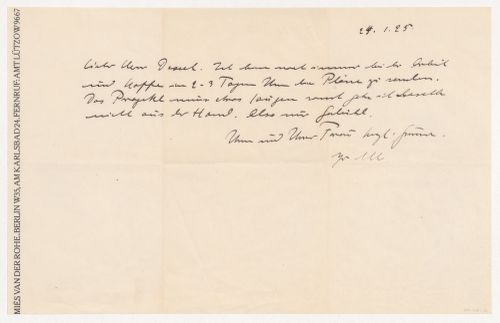 MIES VAN DER ROHE. BERLIN W35, AM KARLSBAD 24. FERNRUF: AMT LÜTZOW 9667
24. 1. 25
Lieber Herr Dexel. Ich bin noch immer bei der Arbeit
und hoffe in 2-3 Tagen Ihnen die Pläne zu senden.
Das Projekt muss etwas taugen sonst gebe ich dasselbe
nicht aus der Hand. Also nur Geduld.
Ihnen und Ihrer Frau herzl. Grüsse.
Ihr